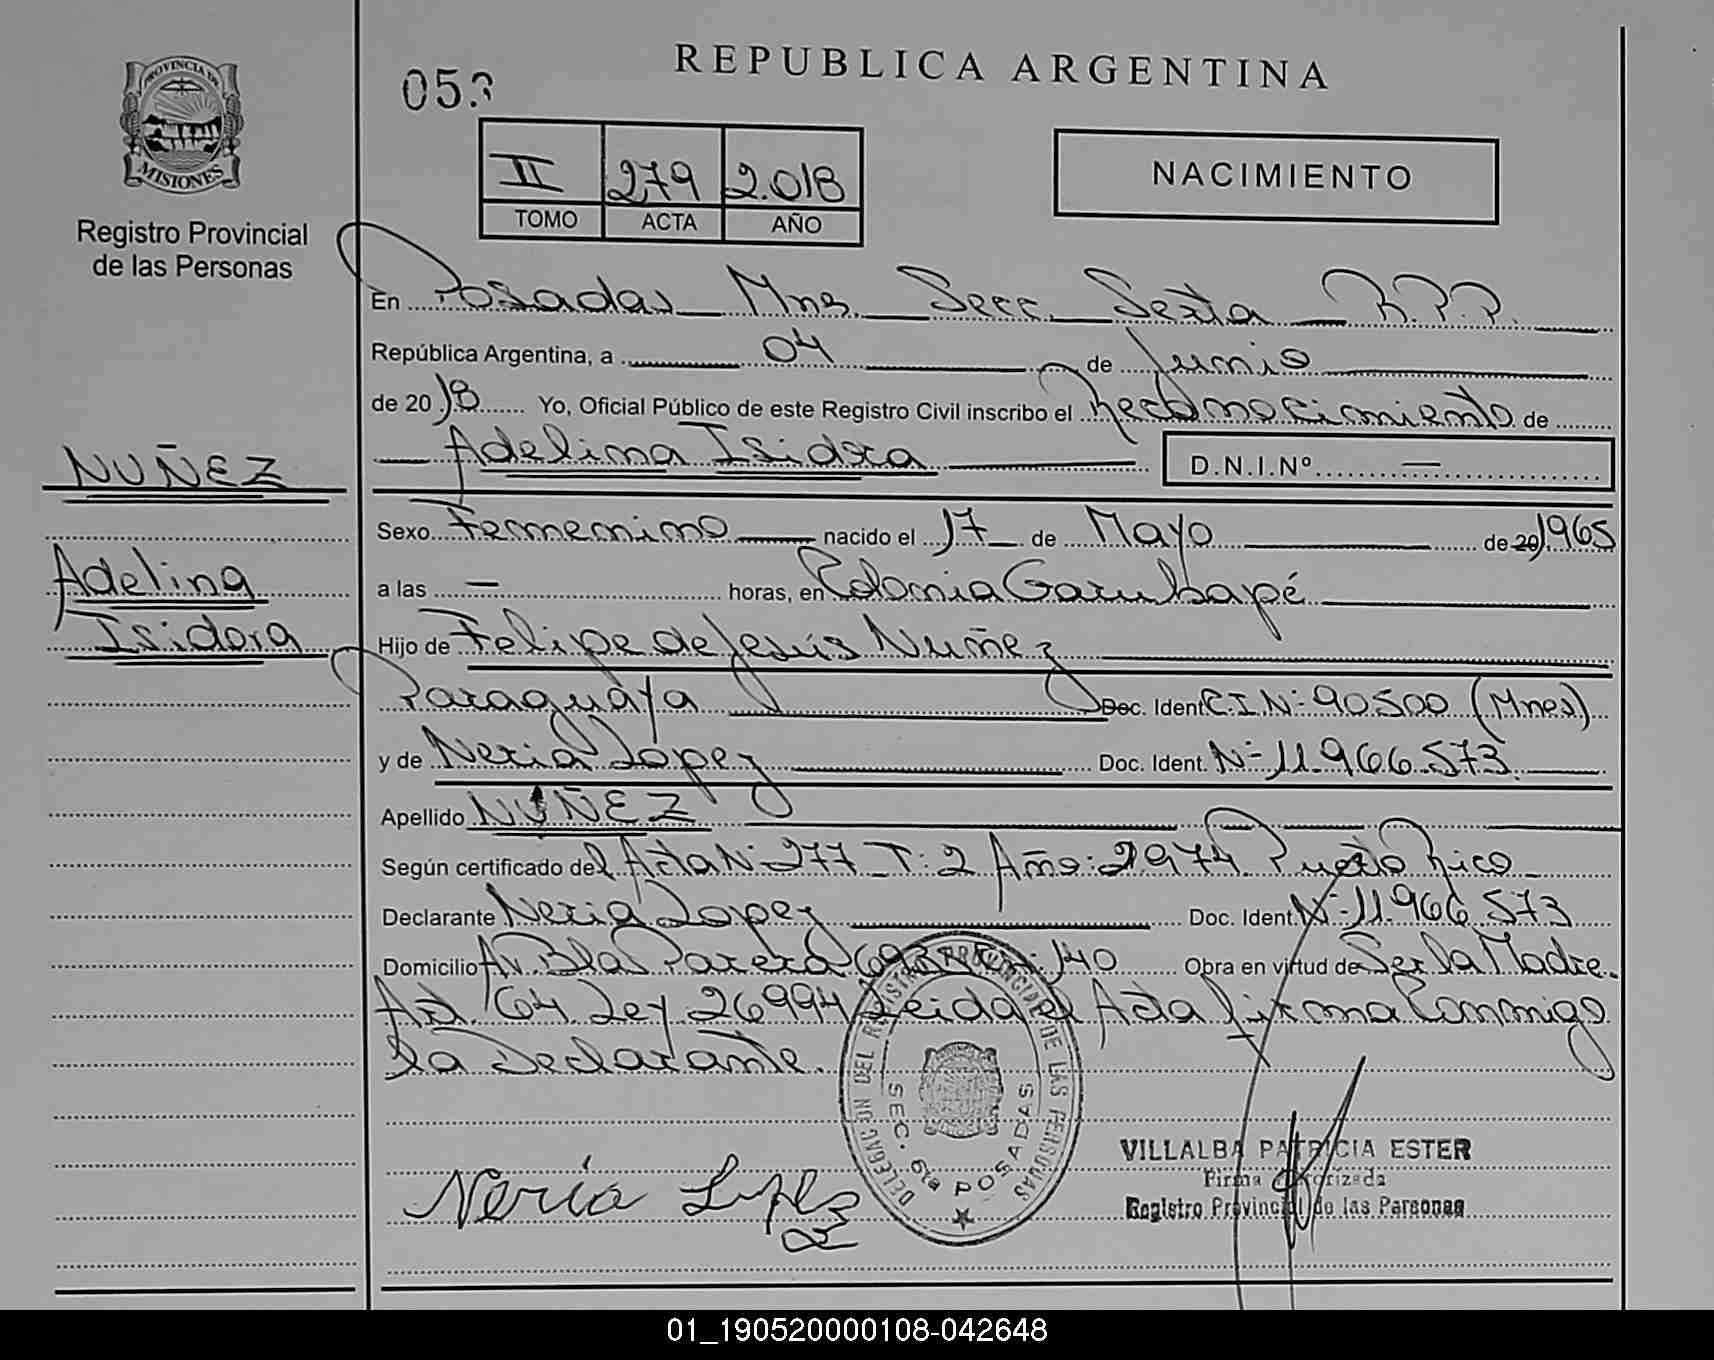 REPUBLICA ARGENTINA
PROVINCIA DE
MISIONES
Registro Provincial
de las Personas
053
II 279 2.018
TOMO ACTA AÑO
NACIMIENTO
En Posadas Mns Secc. Sexta R.P.P.
República Argentina, a 04 de Junio
de 2018 Yo, Oficial Público de este Registro Civil inscribo el Reconocimiento de
Adelina Isidora D.N.I.Nº —
NUÑEZ
Adelina
Isidora
Sexo Femenino nacido el 17 de Mayo de 20 1965
a las — horas, en Colonia Garuhapé
Hijo de Felipe de Jesús Nuñez
Paraguaya Doc. Ident. C.I.Nº 90.500 (Mnes)
y de Neria Lopez Doc. Ident. Nº 11.966.573
Apellido NUÑEZ
Según certificado del Acta Nº 277 T: 2 Año: 1974 Puerto Rico
Declarante Neria Lopez Doc. Ident. Nº 11.966.573
Domicilio Av. Blas Parera 140 Obra en virtud de Ser la Madre.
Art. 64 Ley 26994 Leida el Acta firma Conmigo
la Declarante.
DELEGACION DEL REGISTRO PROVINCIAL DE LAS PERSONAS
SEC. 6ta POSADAS
Neria Lopez
VILLALBA PATRICIA ESTER
Firma Autorizada
Registro Provincial de las Personas
01_190520000108-042648